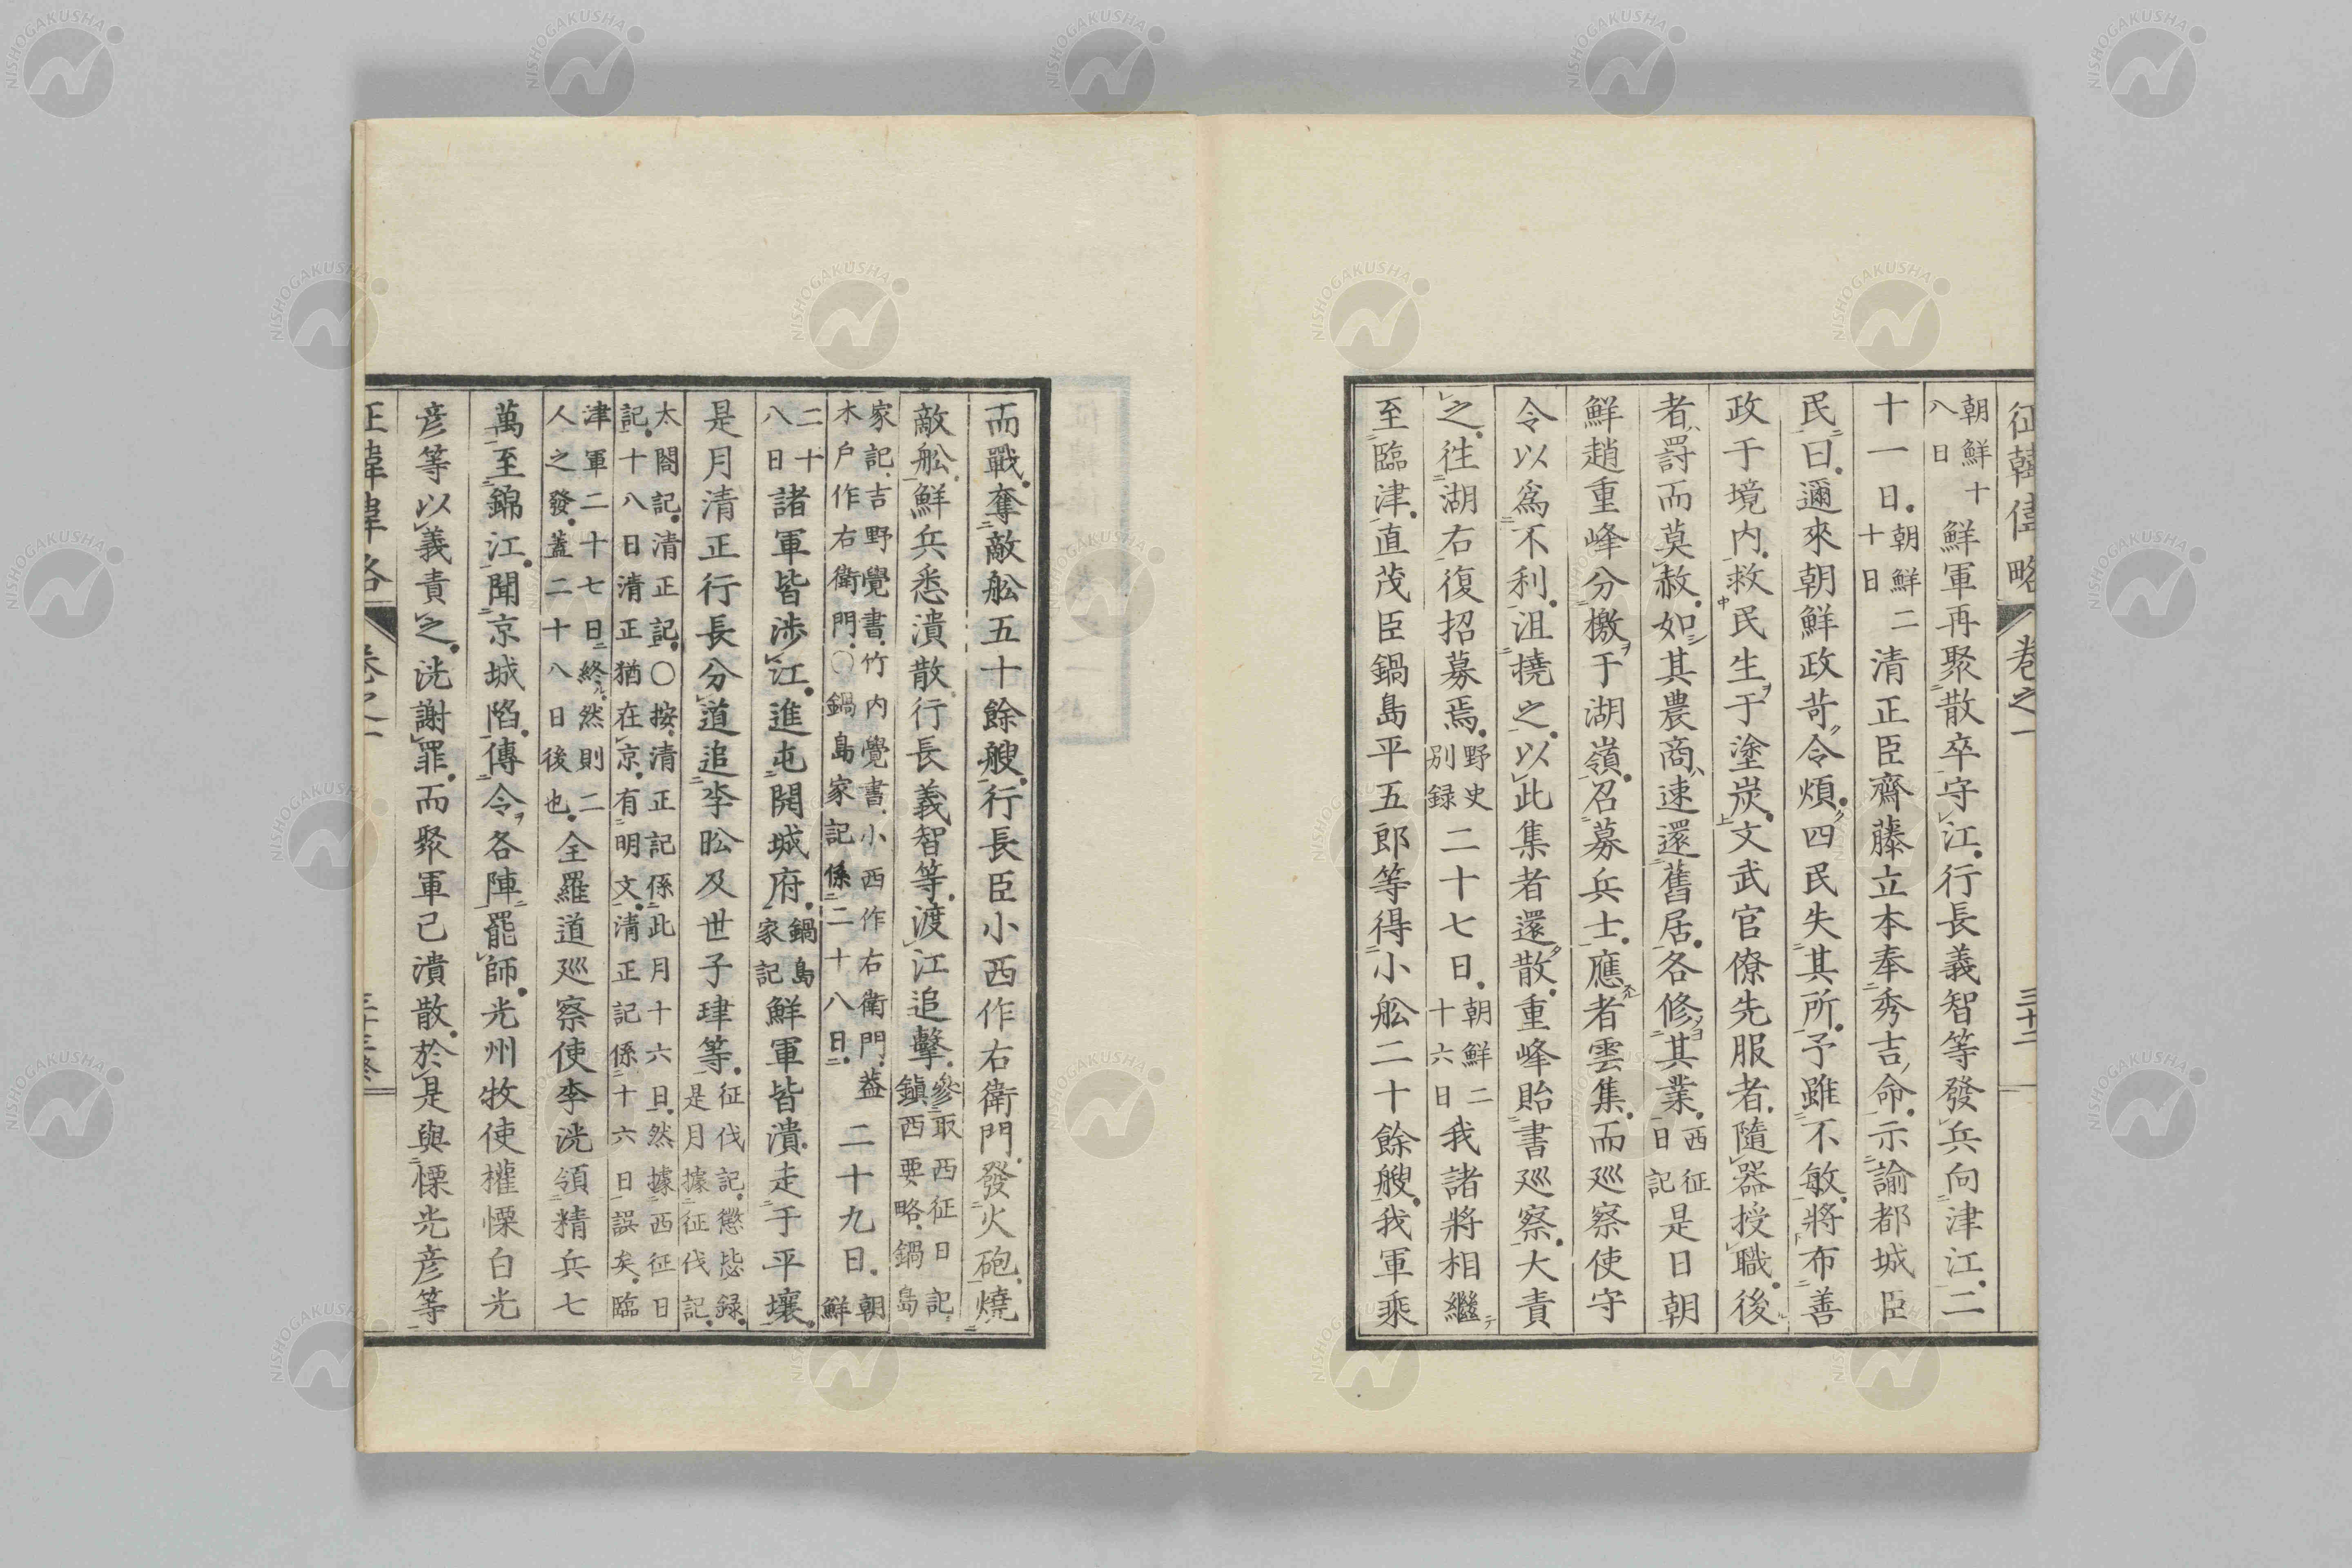 征韓偉略 卷之一 三十二
朝鮮十八日鮮軍再聚散卒守江。行長義智等發兵向津江。二
十一日。朝鮮二十日清正臣齋藤立本奉秀吉命。示諭都城臣
民曰。邇來朝鮮政苛令煩。四民失其所。予雖不敏。將布善
政于境内。救民生于塗炭。文武官僚先服者。隨器授職。後
者罸而莫赦。如其農商速還舊居。各修其業。西征日記是日朝
鮮趙重峰分檄于湖嶺。召募兵士。應者雲集。而巡察使守
令以爲不利。沮撓之。以此集者還散。重峰貽書巡察。大責
之。徃湖右復招募焉。野史別録二十七日。朝鮮二十六日我諸將相繼
至臨津。直茂臣鍋島平五郎等得小舩二十餘艘。我軍乘
而戰。奪敵舩五十餘艘。行長臣小西作右衛門。發火砲。燒
敵舩。鮮兵悉潰散。行長義智等。渡江追擊。參取西征日記。鎭西要略。鍋島
家記。吉野覺書。竹内覺書。小西作右衛門。蓋木戸作右衛門。〇鍋島家記係二十八日。二十九日。朝鮮
二十八日諸軍皆渉江。進屯開城府。鍋島家記鮮軍皆潰。走于平壤。
是月清正行長分道追李昖及世子琿等。征伐記。懲毖録。是月據征伐記。
太閤記。清正記。〇按。清正記係此月十六日。然據西征日記。十八日清正猶在京。有明文。清正記係十六日誤矣。臨
津軍二十七日終。然則二人之發。蓋二十八日後也。全羅道巡察使李洸領精兵七
萬至錦江。聞京城陷。傳令各陣罷師。光州牧使權慄白光
彥等以義責之。洸謝罪。而聚軍已潰散。於是與慄光彥等